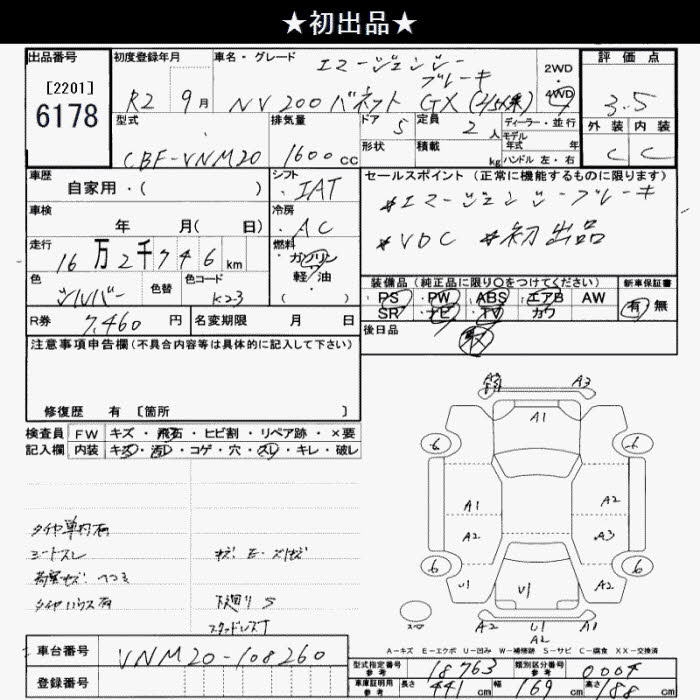 ★初出品★
出品番号
[2201]
6178
初度登録年月
R2 9月
車名・グレード
エマージェンシー
ブレーキ
NV200バネット GX
2WD
4WD
評価点
3.5
外装 内装
C C
型式
CBF-VNM20
排気量
1600cc
ドア 5
形状
定員 2人
積載 kg
ディーラー・並行
モデル
年式 年
ハンドル 左・右
車歴
自家用・( )
シフト
IAT
セールスポイント(正常に機能するものに限ります)
*エマージェンシーブレーキ
*VDC *初出品
車検
年 月( 日)
冷房
AC
走行
16万2千746km
燃料
ガソリン
軽・油
( ・ )
色
シルバー
色替
色コード
K23
装備品(純正品に限り○をつけてください)
PS・PW・ABS・エアB AW
SR・ナビ・TV・カワ
新車保証書
有・無
R券 7,460円
名変期限 月 日
後日品
取
注意事項申告欄(不具合内容等は具体的に記入して下さい)
修復歴 有 [箇所 ]
検査員
記入欄
FW キズ・飛石・ヒビ割・リペア跡・×要
内装 キズ・汚レ・コゲ・穴・スレ・キレ・破レ
シートスレ
下廻りS
A3
A1
6 6
A1 A2
A2 A3
6 6
U1 U1 A2
A2 U1 A1
A2
A-キズ E-エクボ U-凹み W-補修跡 S-サビ C-腐食 XX-交換済
車台番号 VNM20-108260
登録番号
型式指定番号
参考
18763
類別区分番号
参考
0004
車庫証明用
参考
長さ 441cm 幅 169cm 高さ 188cm